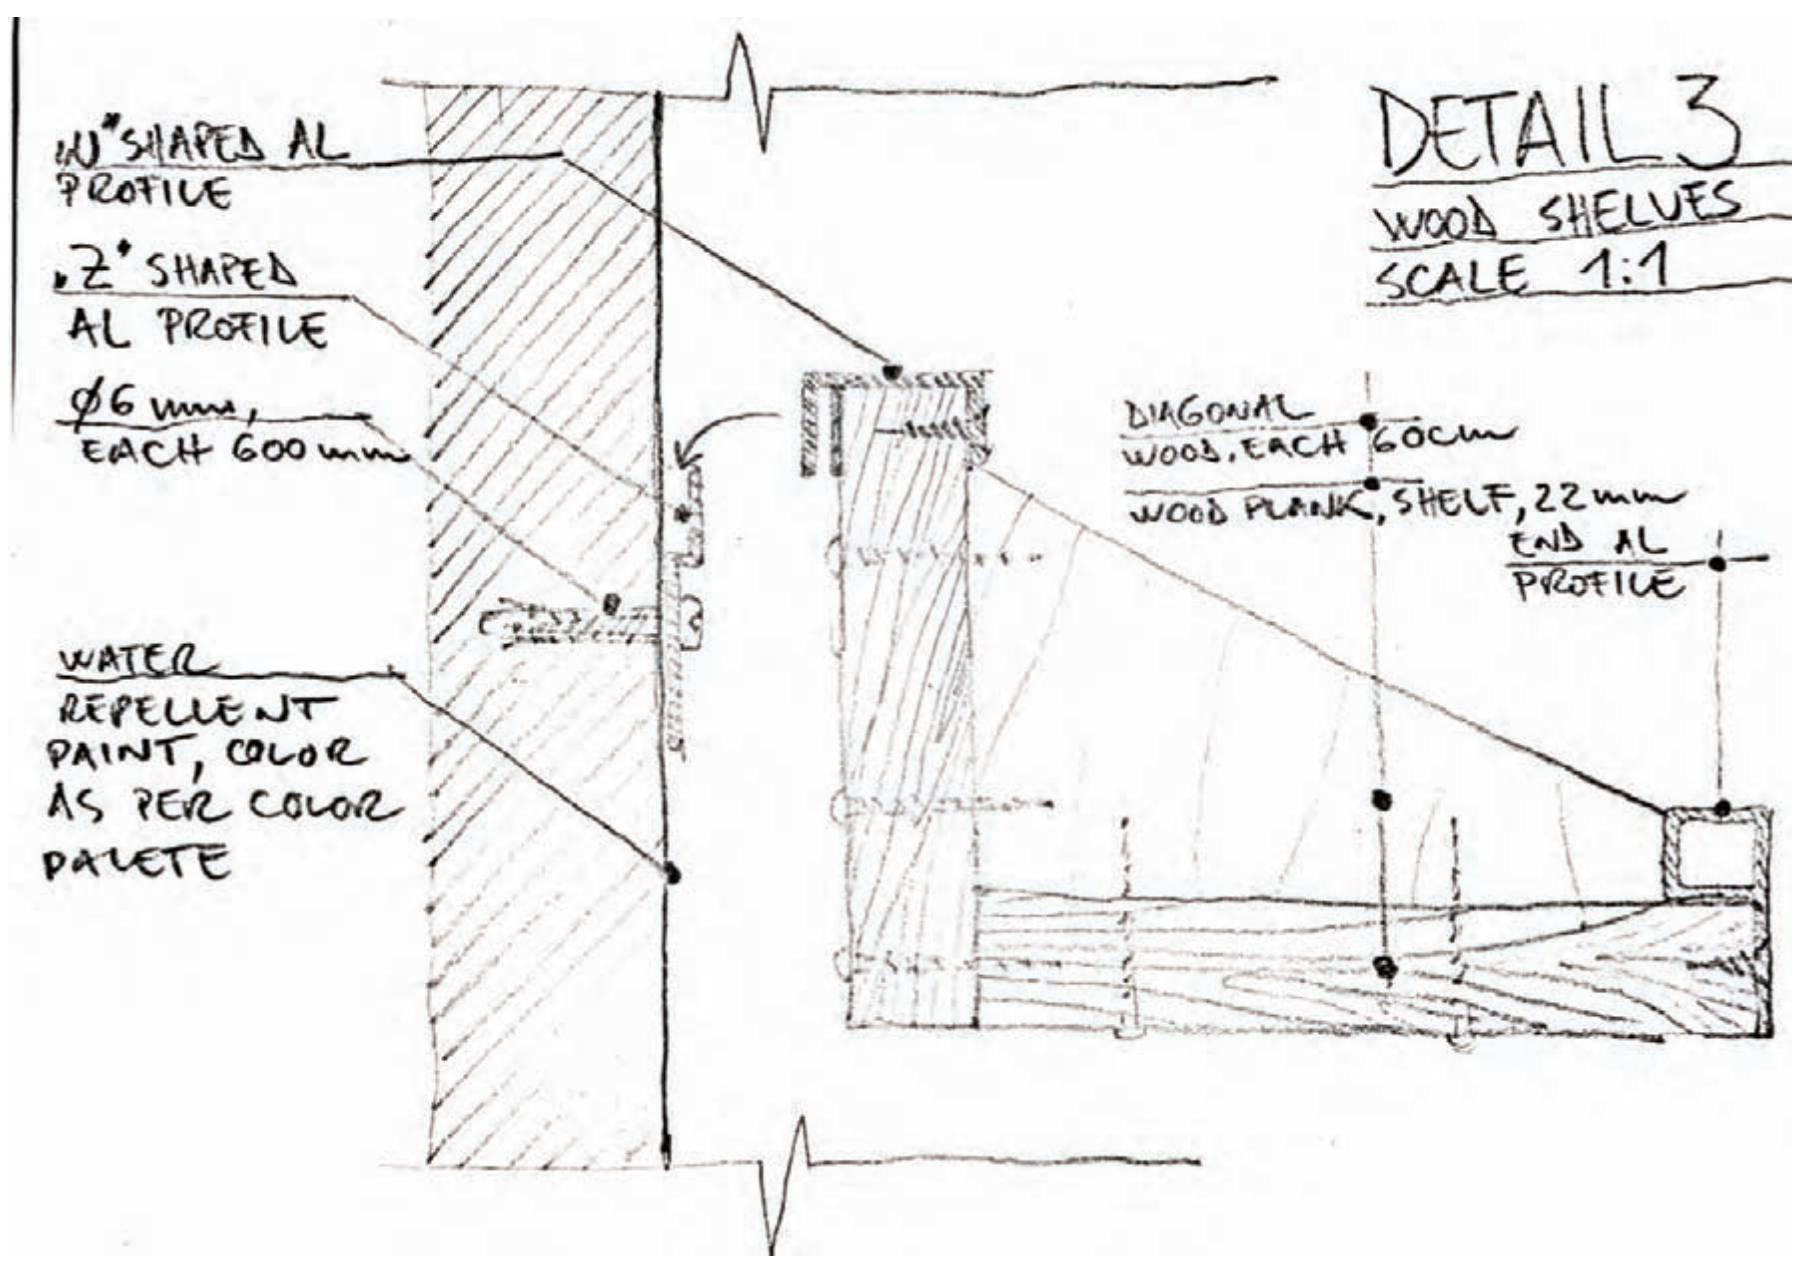 „N" SHAPED AL
PROFILE
„Z" SHAPED
AL PROFILE
Ø6 mm,
EACH 600 mm
WATER
REPELLENT
PAINT, COLOR
AS PER COLOR
PALETE
DETAIL 3
WOOD SHELVES
SCALE 1:1
DIAGONAL
WOOD, EACH 60cm
WOOD PLANK, SHELF, 22mm
END AL
PROFILE